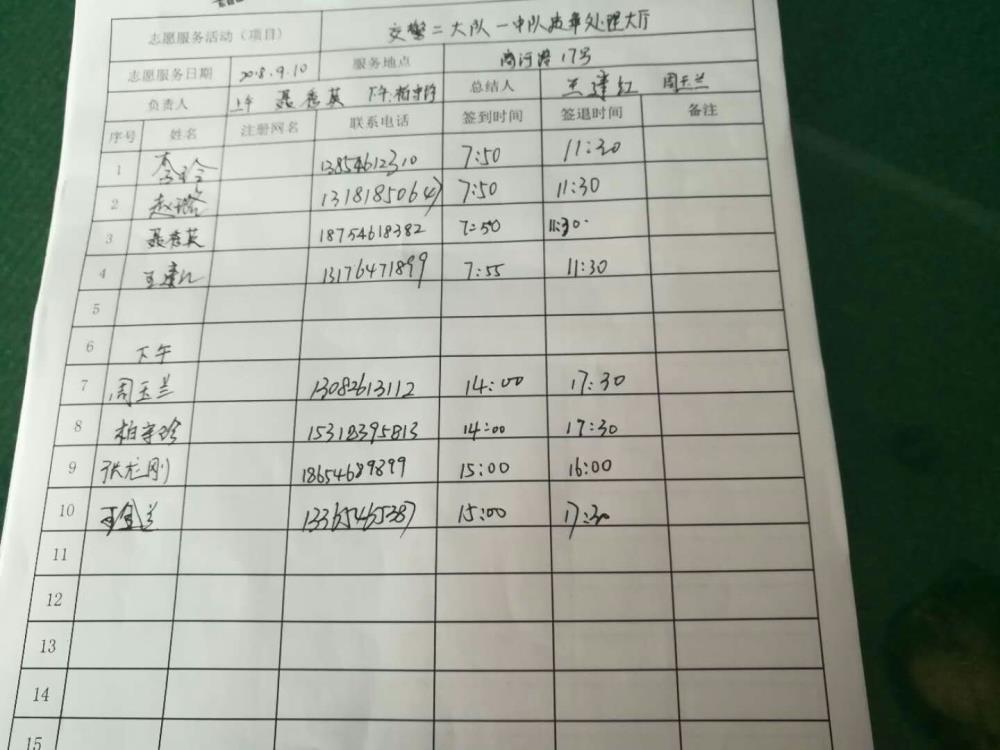 志愿服务活动（项目） 交警二大队一中队故事处理大厅
志愿服务日期 2018.9.10 服务地点 商河路17号
负责人 上午 聂秀英 下午:柏守珍 总结人 王建红 周玉兰
序号 姓名 注册网名 联系电话 签到时间 签退时间 备注
1 13854612310 7:50 11:30
2 赵璐 13181850647 7:50 11:30
3 聂秀英 18754618382 7:50 11:30
4 王建红 13176471899 7:55 11:30
5
6 下午
7 周玉兰 13082613112 14:00 17:30
8 柏守珍 15312395813 14:00 17:30
9 张龙刚 18654689899 15:00 16:00
10 13365465387 15:00 17:30
11
12
13
14
15